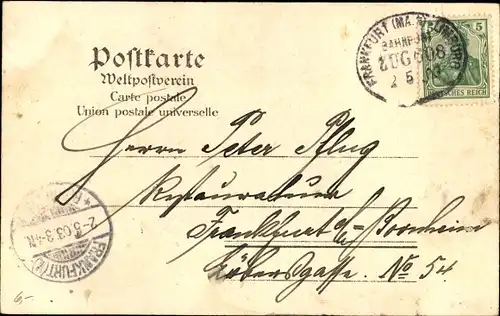 Postkarte
Weltpostverein
Carte postale
Union postale universelle
FRANKFURT (MA
BAHNPOST
ZUG 608
2 5
5
DEUTSCHES REICH
Herrn Peter Pflug
Restaurateur
Frankfurt a/ Bornheim
No 54
FRANKFURT
2.5.03.3-4N.
6,-